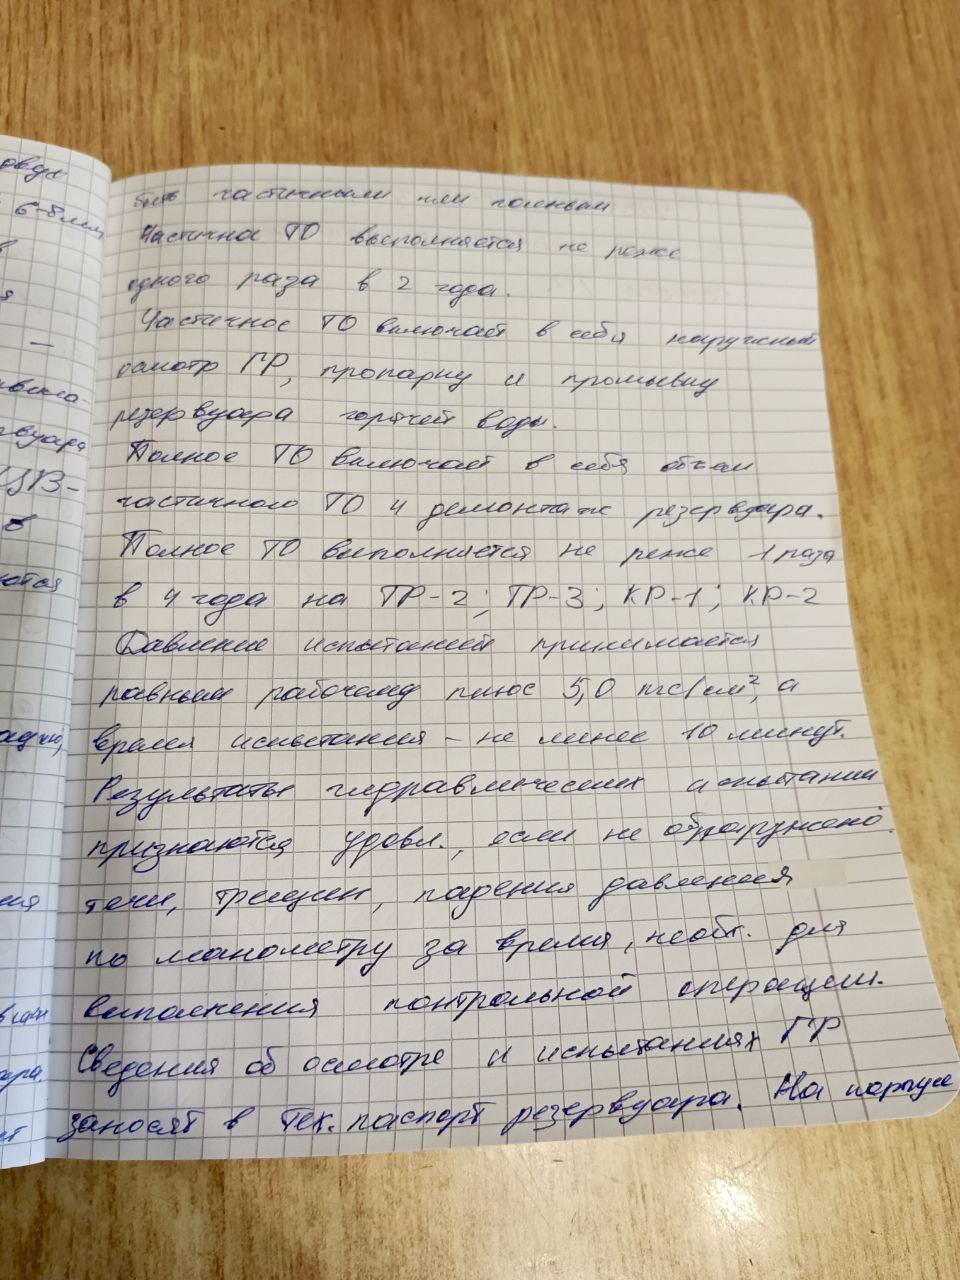 двух
6-8 мм
в
я
—
вуара
ЦВЗ-
в
ются
ацию,
ия
ера.
ет
быть частичными или полным
Частичное ТО выполняется не реже
одного раза в 2 года.
Частичное ТО включает в себя наружный
осмотр ГР, пропарку и промывку
резервуара горячей воды.
Полное ТО включает в себя объем
частичного ТО и демонтаж резервуара.
Полное ТО выполняется не реже 1 раза
в 4 года на ТР-2; ТР-3; КР-1; КР-2
Давление испытаний принимается
равным рабочему плюс 5,0 кгс/см², а
время испытания – не менее 10 минут.
Результаты гидравлических испытании
признаются удовл., если не обнаружено
течи, трещин, падения давления
по манометру за время, необх. для
выполнения контрольной операции.
Сведения об осмотре и испытаниях ГР
заносят в тех. паспорт резервуара. На корпусе